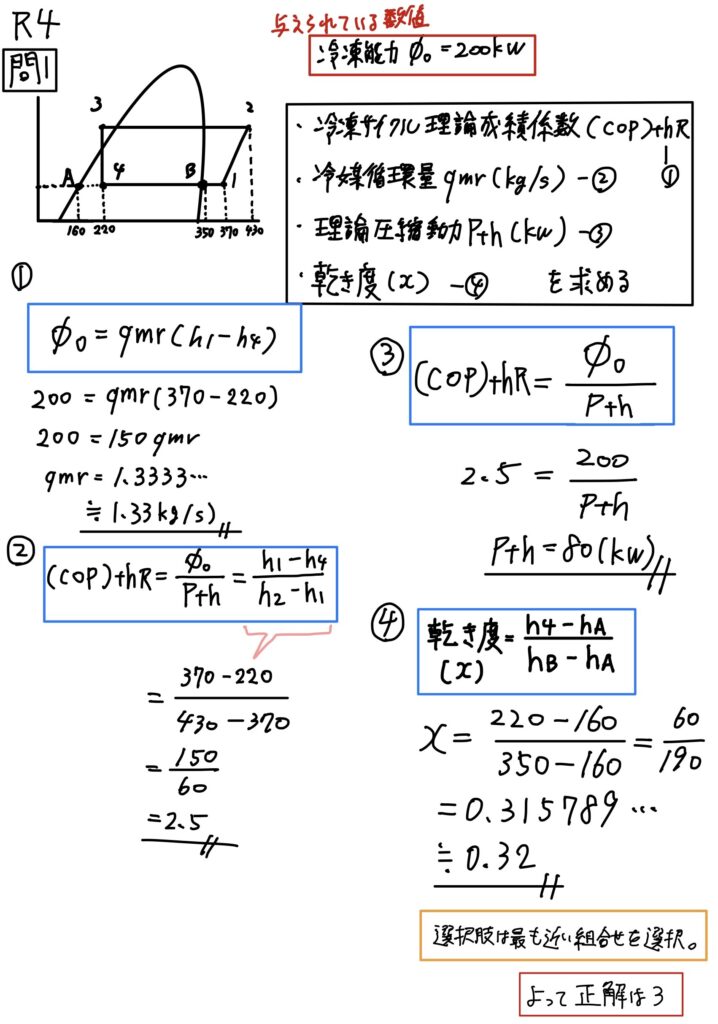 R4
問1
与えられている数値
冷凍能力 Φ0 = 200kW
3
2
A
4
B
1
160
220
350
370
430
・冷凍サイクル理論成績係数(COP)thR
①
・冷媒循環量 qmr(kg/s) -②
・理論圧縮動力Pth(kW) -③
・乾き度(x) -④ を求める
①
Φ0 = qmr(h1-h4)
200 = qmr(370-220)
200 = 150qmr
qmr = 1.3333…
≒ 1.33kg/s)
②
(COP)thR = Φ0/Pth = h1-h4/h2-h1
= 370-220/430-370
= 150/60
= 2.5
③
(COP)thR = Φ0/Pth
2.5 = 200/Pth
Pth = 80(kW)
④
乾き度(x) = h4-hA/hB-hA
x = 220-160/350-160 = 60/190
= 0.315789…
≒ 0.32
選択肢は最も近い組合せを選択。
よって正解は3